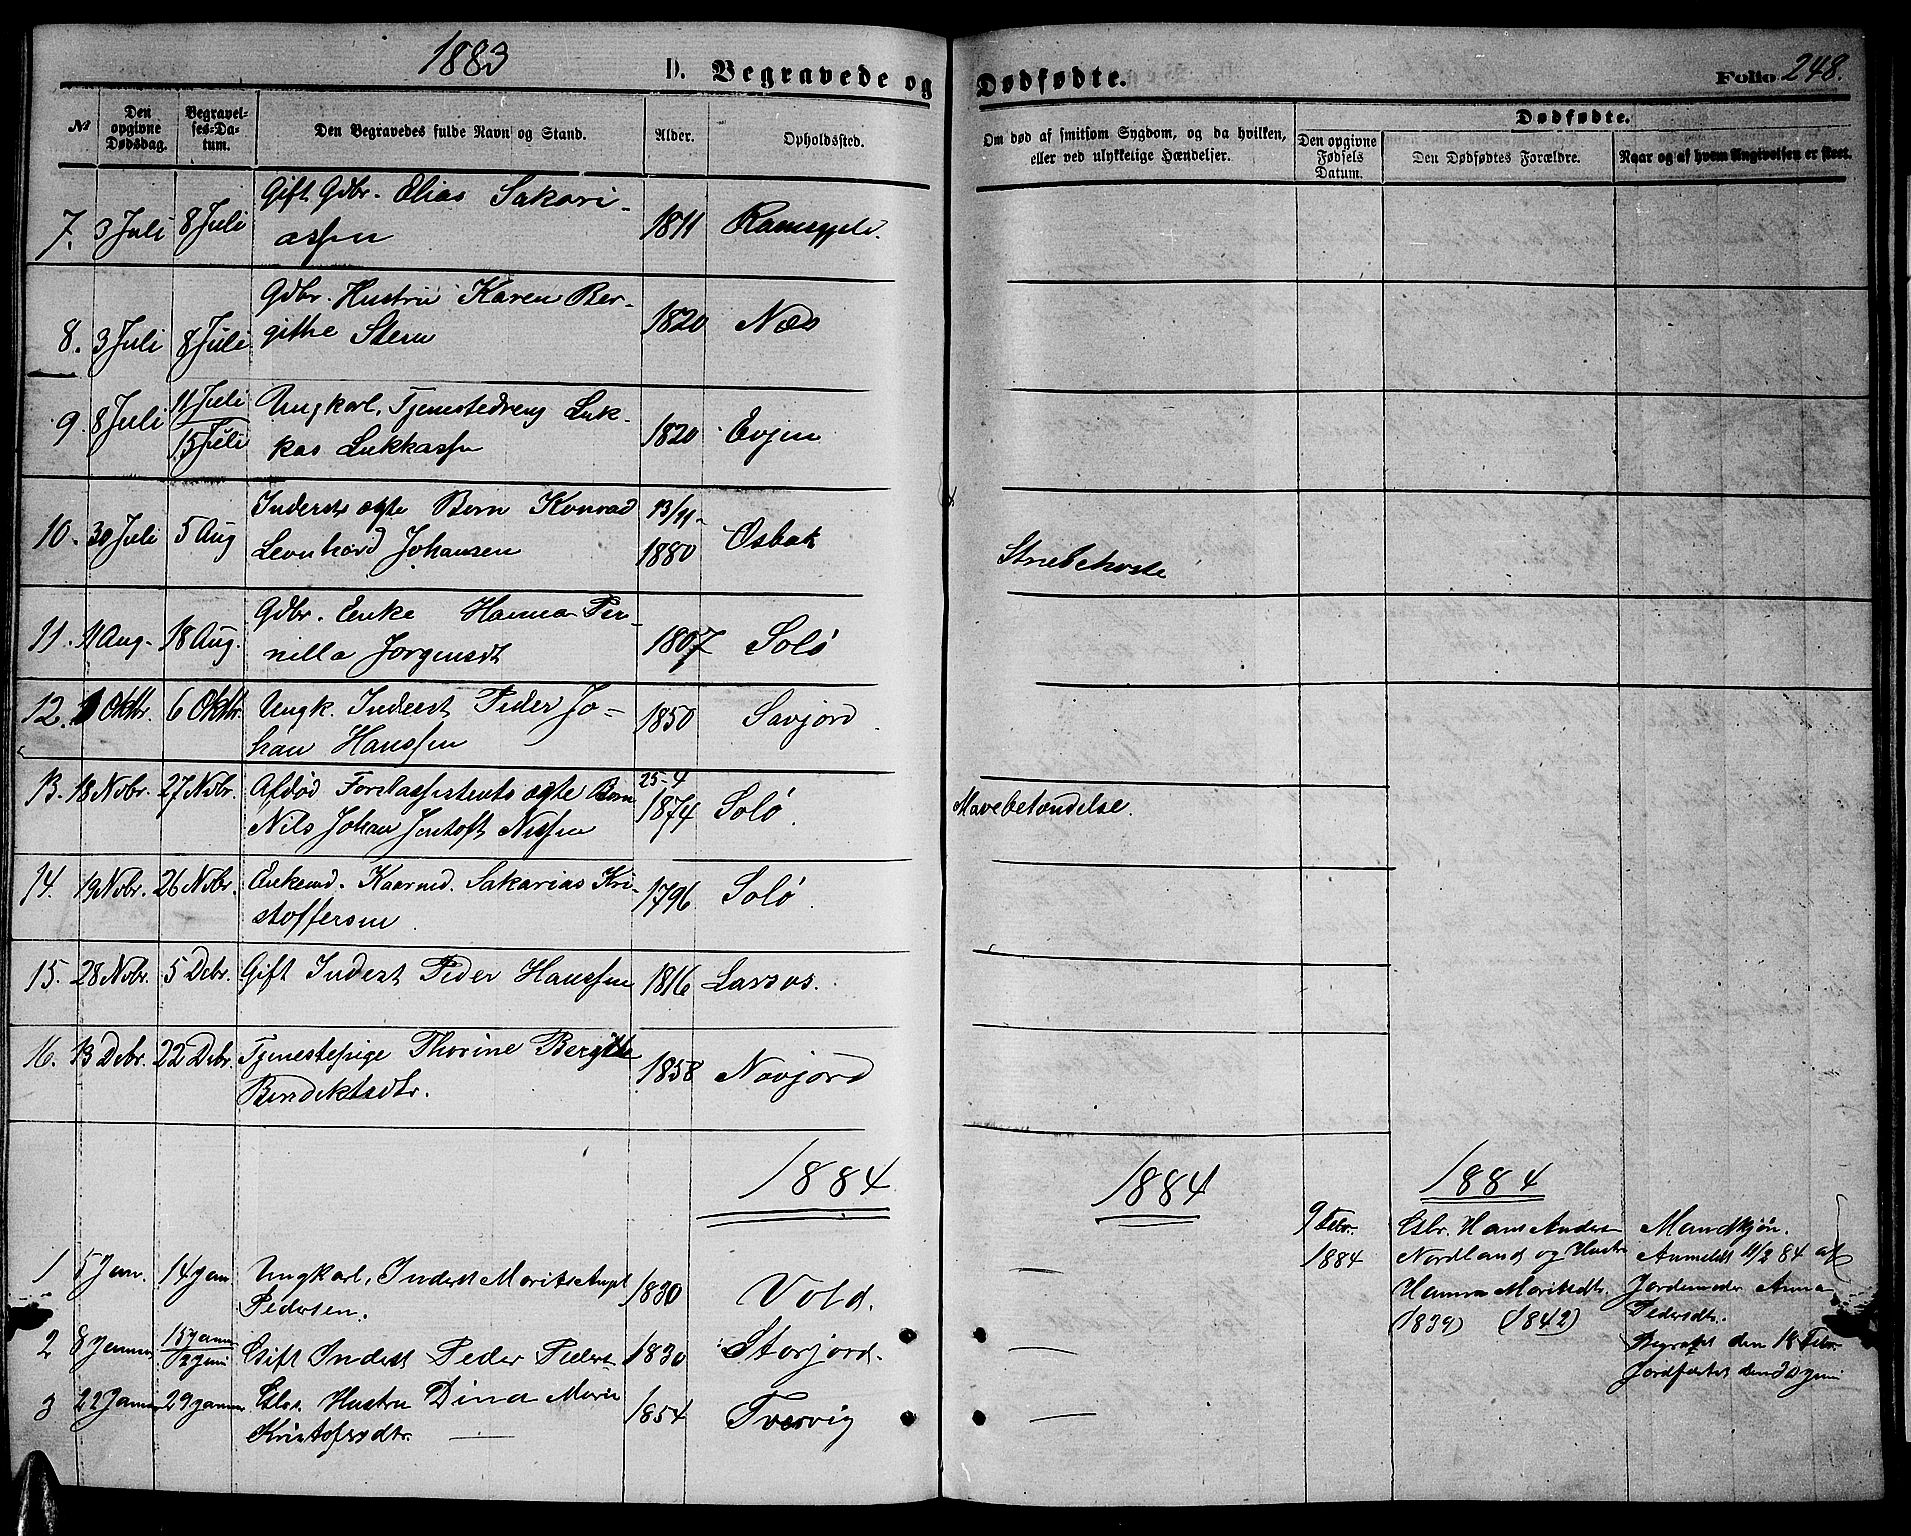 1883 D. Begravede og Dødfødte. Folio 248.
№ Den opgivne Dødsdag. Begravelses-Datum. Den Begravedes fulde Navn og Stand. Alder. Opholdssted.
Om død af smitsom Sygdom, og da hvilken, eller ved ulykkelige Hændelser.
Dødfødte.
Den opgivne Fødsels Datum. Den Dødfødtes Forældre. Naar og af hvem Angivelsen er skeet.
7. 3 Juli 8 Juli Gift Gdbr. Elias Sakari-
assen 1811
8. 3 Juli 8 Juli Gdbr. Hustru Karen Ber-
githe Steen 1820 Næs
9. 8 Juli 11 Juli
15 Juli Ungkarl, Tjenestedreng Luk-
kas Lukkassen 1820 Evjen
10. 30 Juli 5 Aug Inderstr ægte Børn Konrad
Leonhard Johansen 13/11-
1880 Osbak Strubehoste
11. 1 Aug. 18 Aug. Gdbr. Enke Hanna Per-
nilla Jørgensdt 1807 Solø
12. Oktbr. 6 Oktbr. Ungk. Inderst Peder Jo-
han Hanssen 1850 Savjord
13. 18 Nobr. 27 Nobr. Afdød Forstassistents ægte Barn
Nils Johan Jentoft Nissen 25-4
1874 Solø. Mavebetændelse.
14. 19 Nobr. 26 Nobr. Enkemd. Kaarmd. Sakarias Kri-
stoffersen 1796 Solø
15. 28 Nobr. 5 Debr. Gift Inderst Peder Hanssen 1816 Larsos.
16. 13 Debr. 22 Debr. Tjenestepige Thorine Bergitte
Bendiktsdtr. 1858 Novjord
1884 1884 1884
1 5 Jan. 14 Jan Ungkarl, Inderst Morits Angel
Pedersen. 1830 Vold.
2 8 Januar 15 Januar
12 Juni Gift Inderst Peder Peders 1830 Storjord.
3 22 Januar 29 Januar Hustru Dina Marie
Kristofersdtr. 1854 Tvervig
9 Febr.
1884
Gbr. Hans Anders
Nordland og Hustru
Hanna Moritsdtr.
(1839) (1842)
Mandkjøn.
Anmeldt 11/2 84 af
Jordemoder Anna
Pedersdtr.
Begravet den 18 Febr.
Jordfæstet den 20 Juni